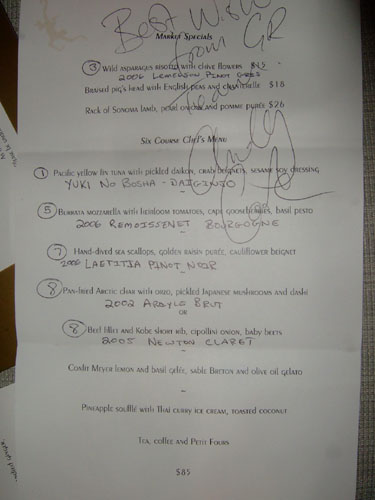 Best Wishes
from GR
Team
Market Specials
3 Wild asparagus risotto with chive flowers $15
2006 Lemelson Pinot Gris
Braised pig's head with English peas and chanterelle $18
Rack of Sonoma lamb, pearl onions and pomme purée $26
Six Course Chef's Menu
1 Pacific yellow fin tuna with pickled daikon, crab beignets, sesame soy dressing
Yuki No Bosha - Daiginjo
5 Burrata mozzarella with heirloom tomatoes, cape gooseberries, basil pesto
2006 Remoissenet Bourgogne
7 Hand-dived sea scallops, golden raisin purée, cauliflower beignet
2006 Laetitia Pinot Noir
8 Pan-fried Arctic char with orzo, pickled Japanese mushrooms and dashi
2002 Argyle Brut
or
8 Beef fillet and Kobe short rib, cipollini onion, baby beets
2005 Newton Claret
Confit Meyer lemon and basil gelée, sable Breton and olive oil gelato
Pineapple soufflé with Thai curry ice cream, toasted coconut
Tea, coffee and Petit Fours
$85